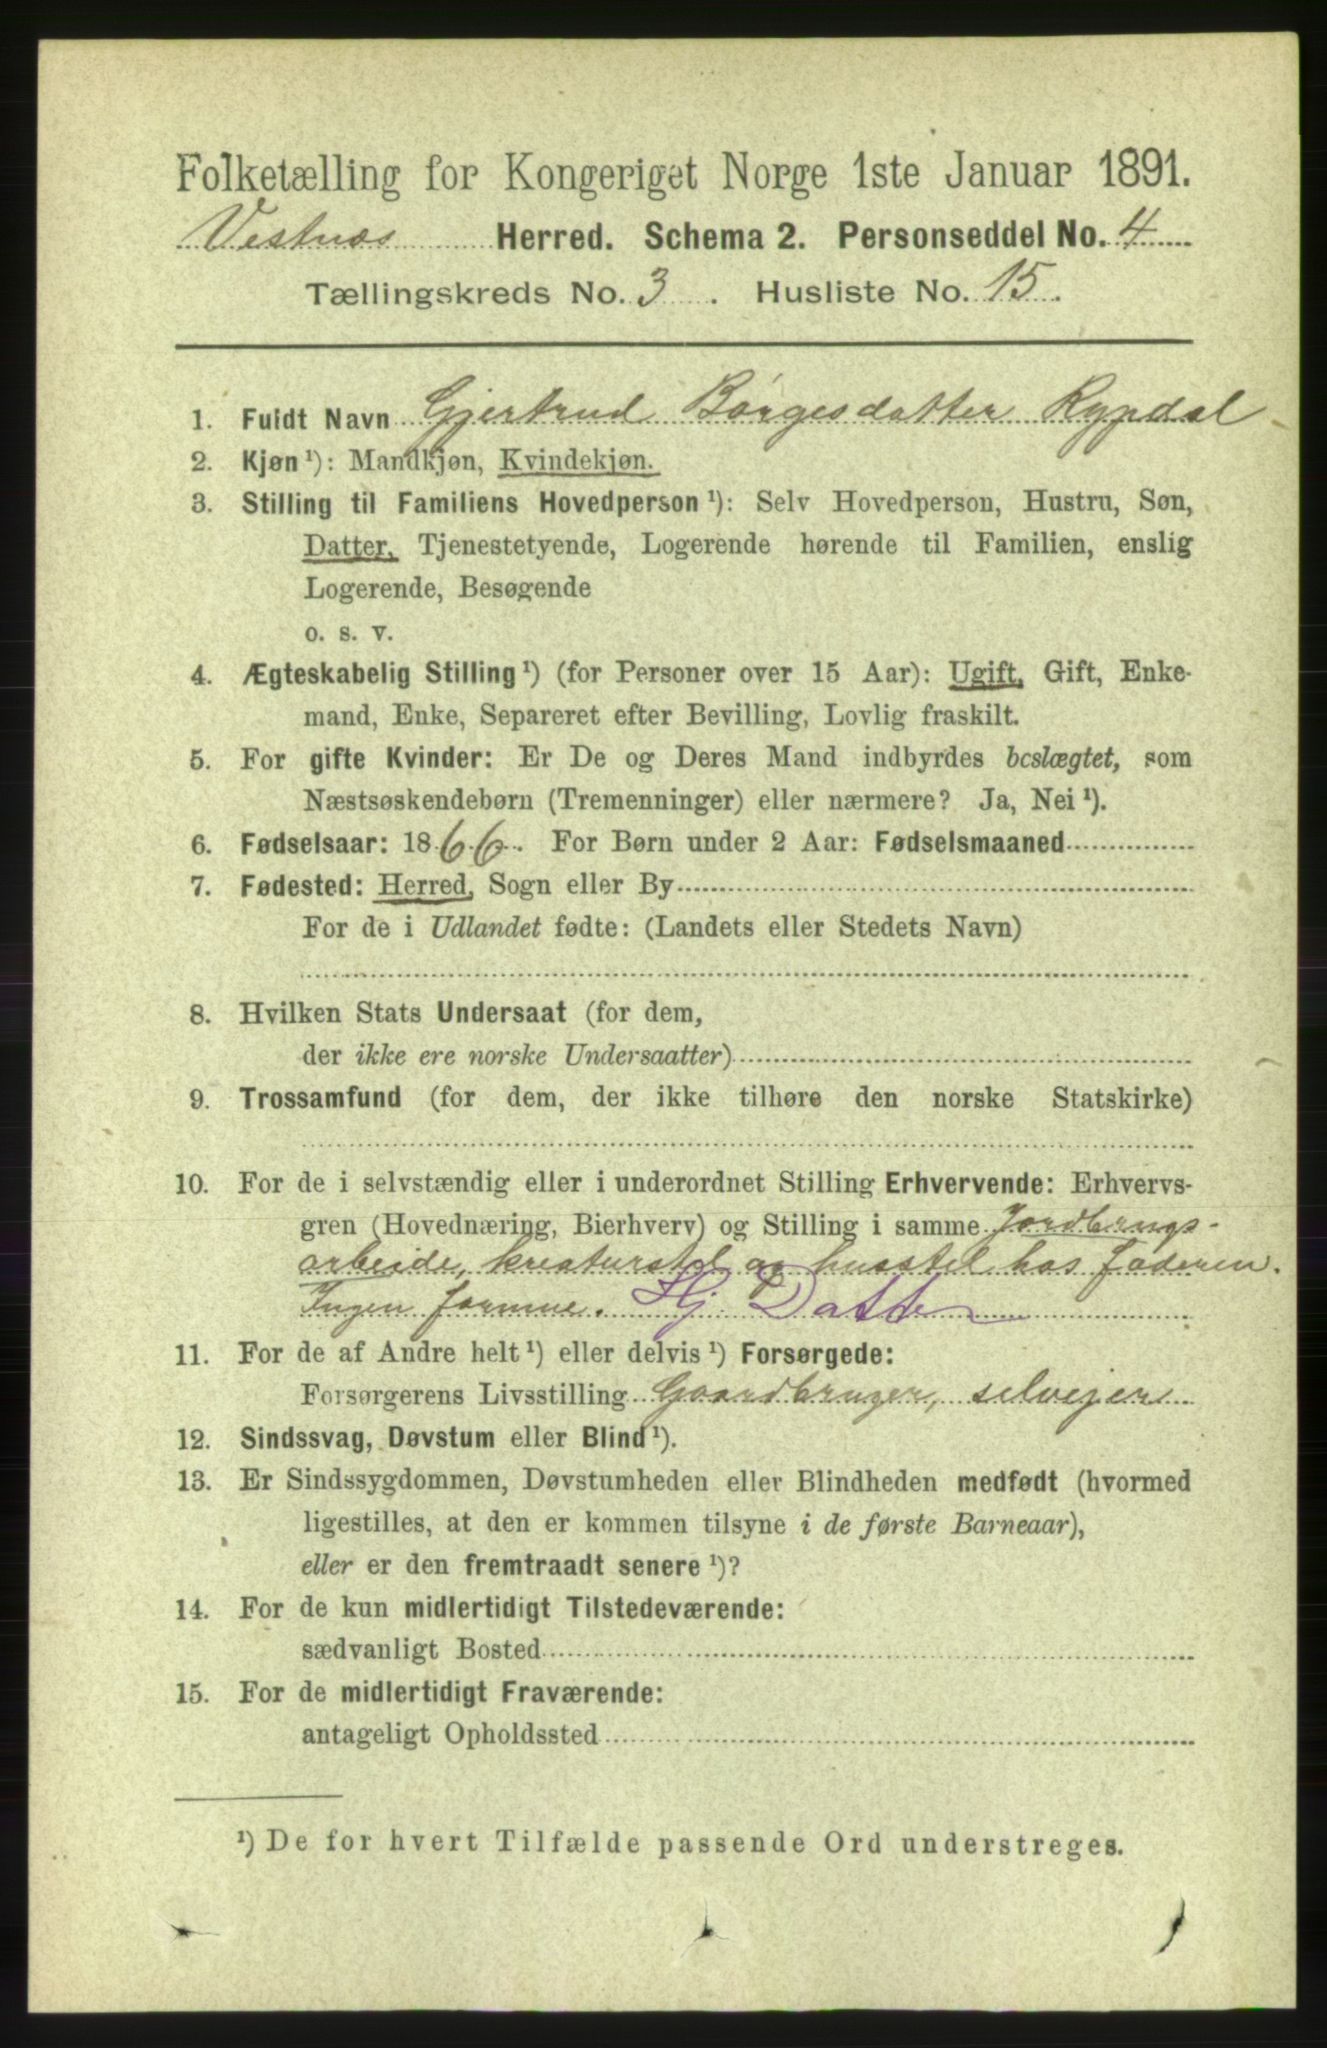 Folketælling for Kongeriget Norge 1ste Januar 1891.
Vestnæs Herred. Schema 2. Personseddel No. 4
Tællingskreds No. 3. Husliste No. 15.
1. Fuldt Navn Gjertrud Børgesdatter Rypdal
2. Kjøn ¹): Mandkjøn, Kvindekjøn.
3. Stilling til Familiens Hovedperson ¹): Selv Hovedperson, Hustru, Søn,
Datter, Tjenestetyende, Logerende hørende til Familien, enslig
Logerende, Besøgende
o. s. v.
4. Ægteskabelig Stilling ¹) (for Personer over 15 Aar): Ugift, Gift, Enke-
mand, Enke, Separeret efter Bevilling, Lovlig fraskilt.
5. For gifte Kvinder: Er De og Deres Mand indbyrdes beslægtet, som
Næstsøskendebørn (Tremenninger) eller nærmere? Ja, Nei ¹).
6. Fødselsaar: 1866. For Børn under 2 Aar: Fødselsmaaned
7. Fødested: Herred, Sogn eller By
For de i Udlandet fødte: (Landets eller Stedets Navn)
8. Hvilken Stats Undersaat (for dem,
der ikke ere norske Undersaatter)
9. Trossamfund (for dem, der ikke tilhøre den norske Statskirke)
10. For de i selvstændig eller i underordnet Stilling Erhvervende: Erhvervs-
gren (Hovednæring, Bierhverv) og Stilling i samme Jordbrugs-
arbeide, kreaturstel og husstel hos faderen.
Ingen formue. Hj Datter
11. For de af Andre helt ¹) eller delvis ¹) Forsørgede:
Forsørgerens Livsstilling Gaardbruger, selveier
12. Sindssvag, Døvstum eller Blind ¹).
13. Er Sindssygdommen, Døvstumheden eller Blindheden medfødt (hvormed
ligestilles, at den er kommen tilsyne i de første Barneaar),
eller er den fremtraadt senere ¹)?
14. For de kun midlertidigt Tilstedeværende:
sædvanligt Bosted
15. For de midlertidigt Fraværende:
antageligt Opholdssted
¹) De for hvert Tilfælde passende Ord understreges.